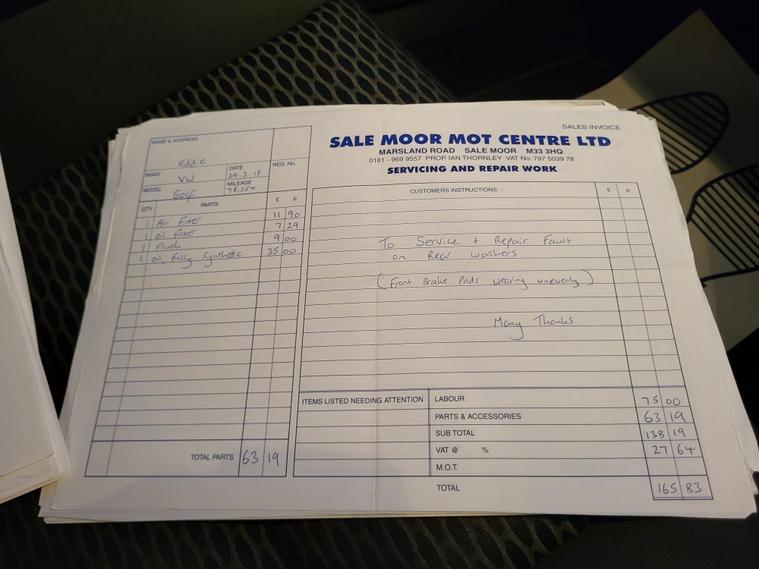 SALES INVOICE
SALE MOOR MOT CENTRE LTD
MARSLAND ROAD SALE MOOR M33 3HQ
0161 - 969 9557 PROP. IAN THORNLEY VAT No. 797 5039 78
SERVICING AND REPAIR WORK
NAME & ADDRESS
Eddie
MAKE VW DATE 29.3.18 REG. No.
MODEL Golf MILEAGE
QTY PARTS £ P
1 Air Filter 11 90
1 Oil Filter 7 29
1 Flush 9 00
1 Oil Fully Synthetic 35 00
TOTAL PARTS 63 19
CUSTOMERS INSTRUCTIONS £ P
To Service + Repair Fault
on Rear Washers
(Front Brake Pads wearing unevenly)
Many Thanks
ITEMS LISTED NEEDING ATTENTION
LABOUR 75 00
PARTS & ACCESSORIES 63 19
SUB TOTAL 138 19
VAT @ % 27 64
M.O.T.
TOTAL 165 83